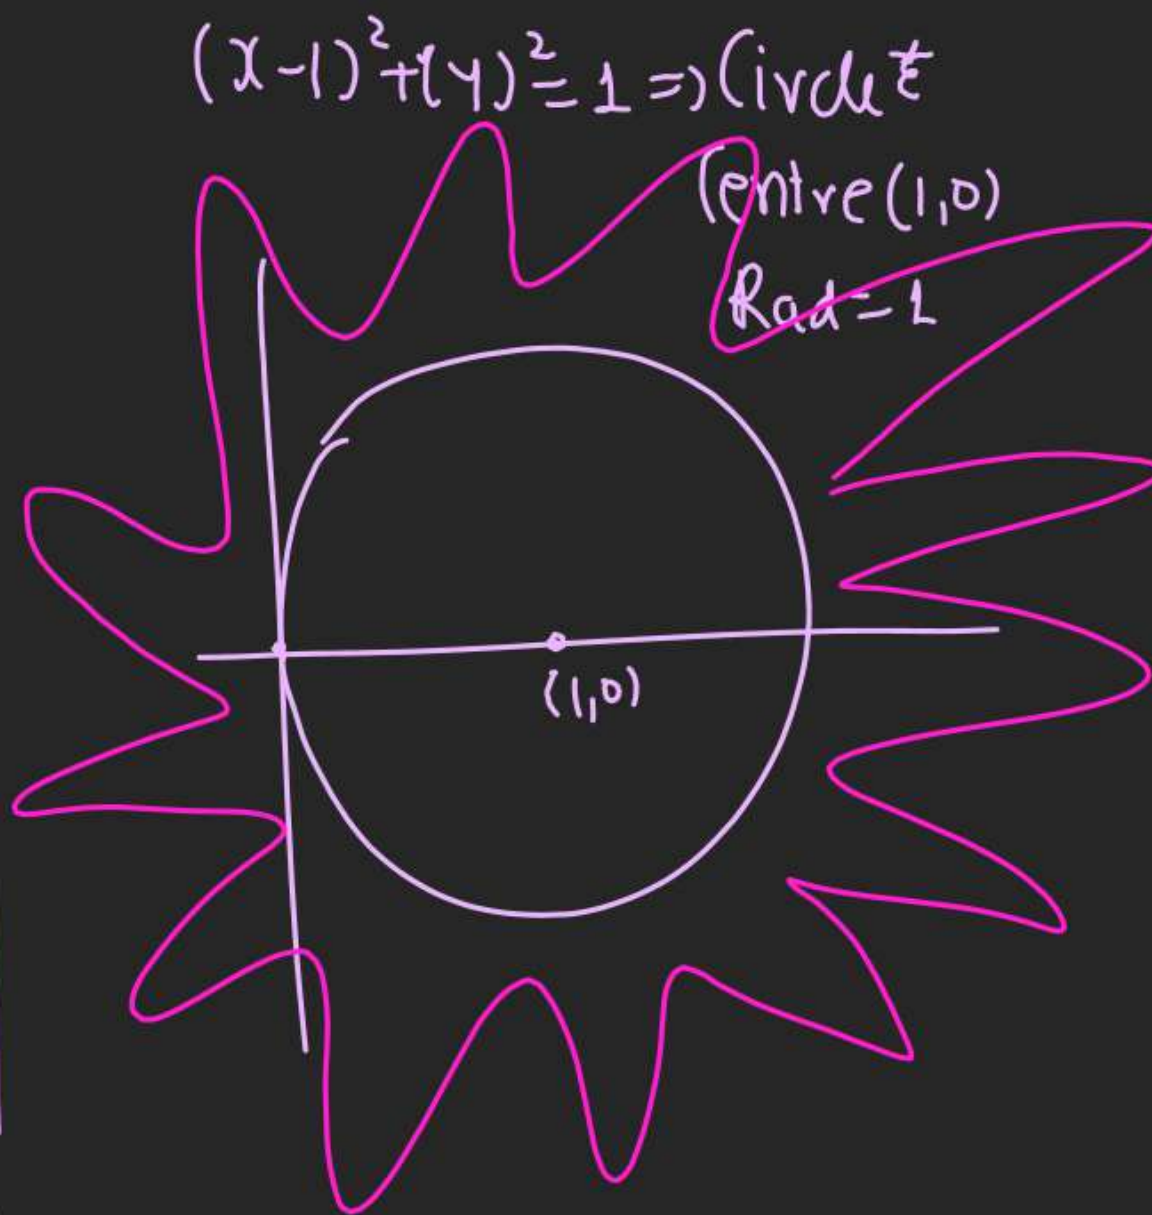 (x-1)²+(y)²=1 => Circle
Centre (1,0)
Rad=1
(1,0)